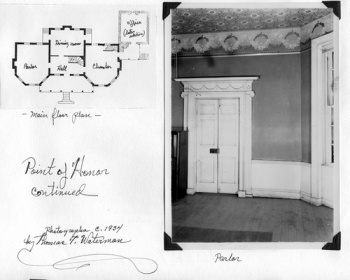 office
(later
addition)
Dining room
Parlor
Hall
Chamber
- Main floor plan -
Point of Honor
continued
Photographed c. 1934
by Thomas T. Waterman
Parlor